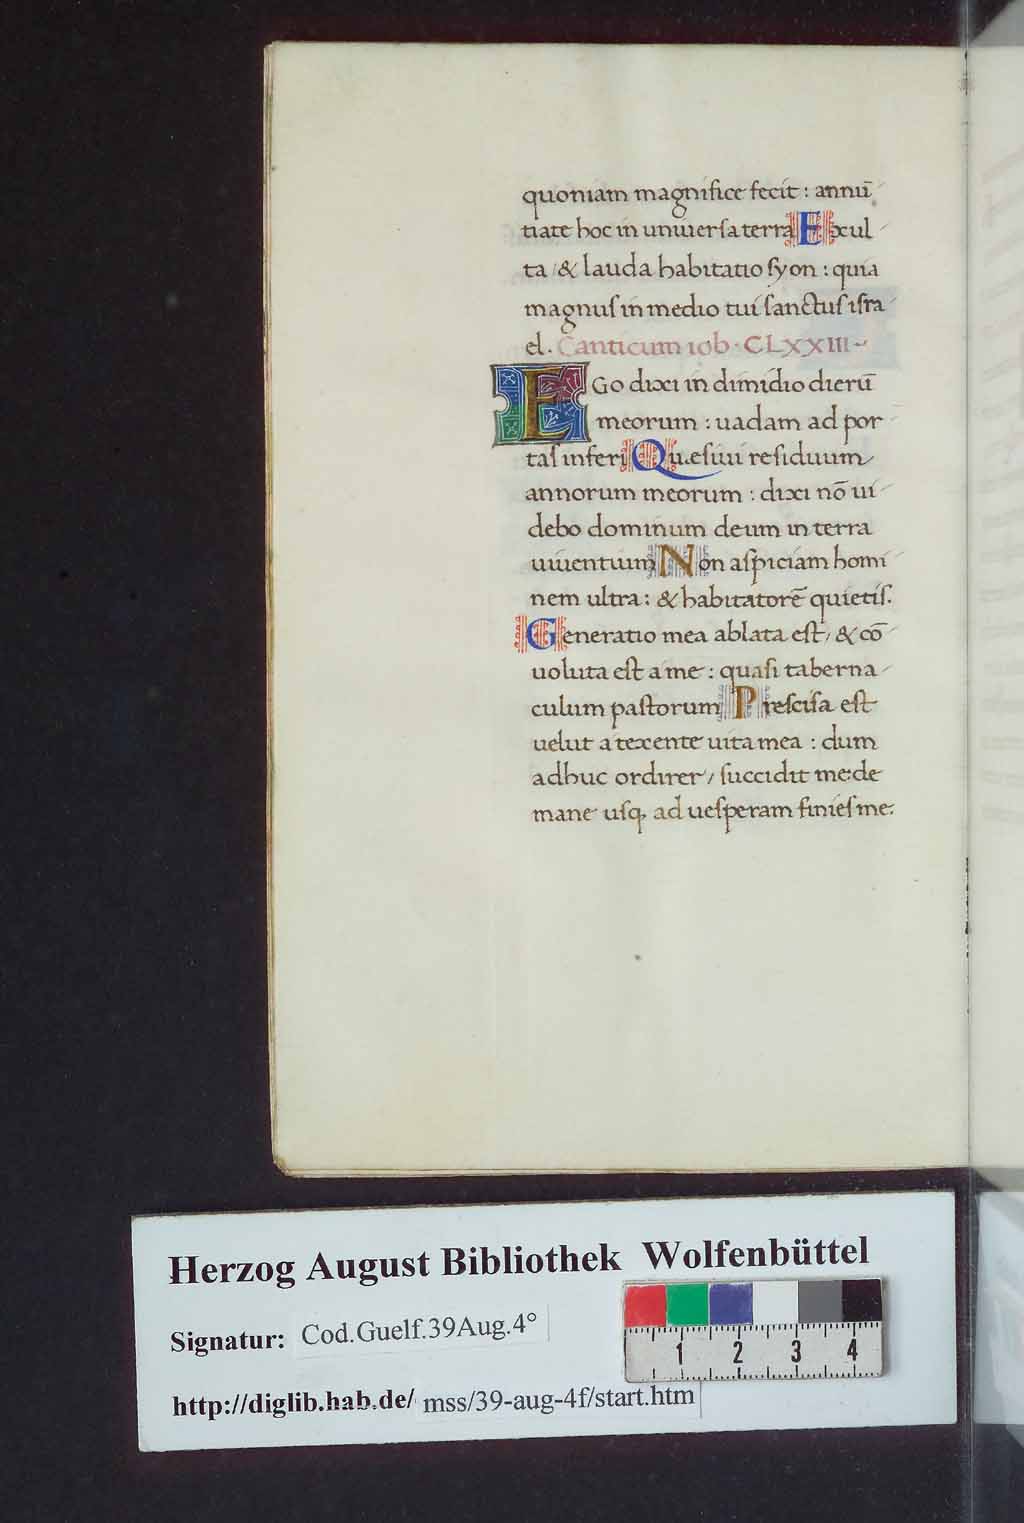 quoniam magnifice fecit : annū
tiate hoc in uniuersa terra Exul
ta & lauda habitatio syon : quia
magnus in medio tui sanctus isra
el. Canticum iob · CLXXIII ~
EGo dixi in dimidio dierū
meorum : uadam ad por
tas inferi Quesiui residuum
annorum meorum : dixi nō ui
debo dominum deum in terra
uiuentium Non aspiciam homi
nem ultra : & habitatorē quietis.
Generatio mea ablata est, & cō
uoluta est a me : quasi taberna
culum pastorum Prescisa est
uelut a texente uita mea : dum
adhuc ordirer, succidit me: de
mane usq, ad uesperam finies me.
Herzog August Bibliothek Wolfenbüttel
Signatur: Cod.Guelf.39Aug.4°
http://diglib.hab.de/ mss/39-aug-4f/start.htm
1 2 3 4